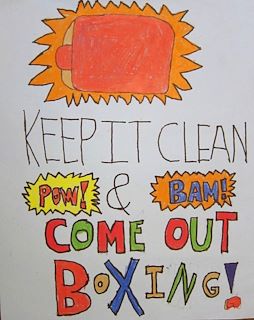 KEEP IT CLEAN
POW! & BAM!
COME OUT
BOXING!